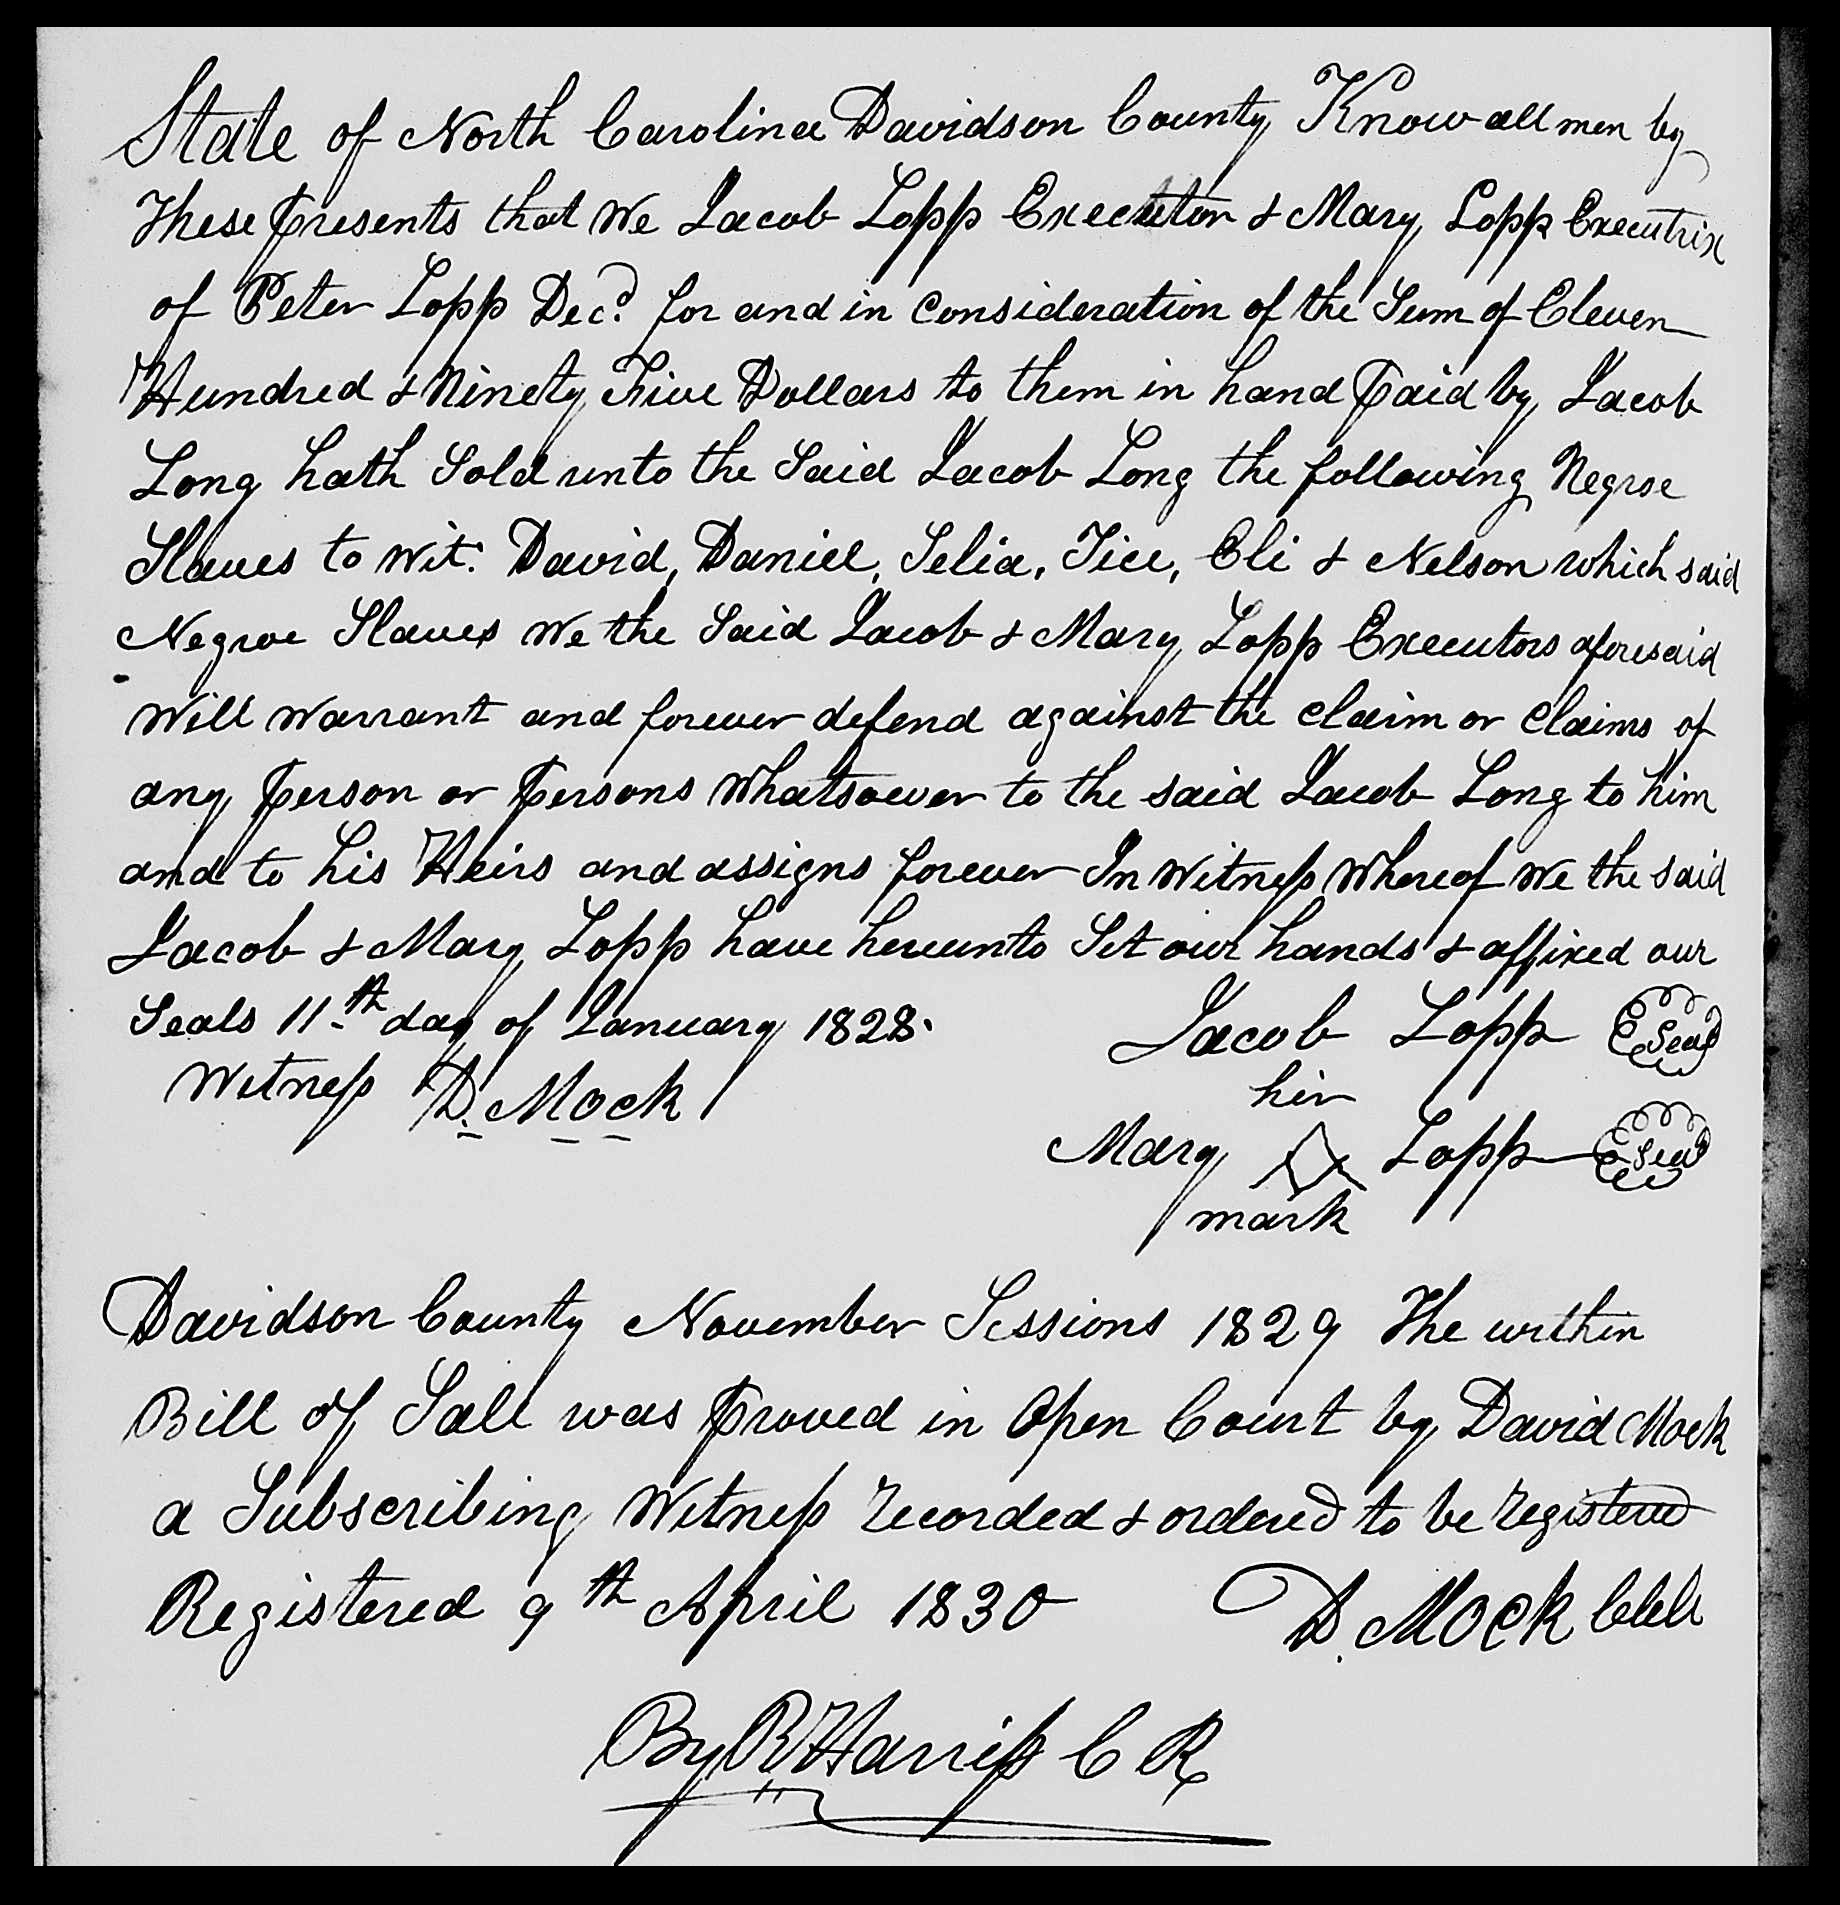 State of North Carolina Davidson County Know all men by
These presents that We Jacob Lopp Executor & Mary Lopp Executrix
of Peter Lopp Decd. for and in Consideration of the Sum of Eleven
Hundred & Ninety Five Dollars to them in hand Paid by Jacob
Long hath Sold unto the Said Jacob Long the following Negroe
Slaves to wit: David, Daniel, Selia, Tice, Eli & Nelson which said
Negroe Slaves We the Said Jacob & Mary Lopp Executors aforesaid
Will Warrant and forever defend against the Claim or Claims of
any Person or Persons Whatsoever to the said Jacob Long to him
and to his Heirs and assigns forever In Witness Whereof We the said
Jacob & Mary Lopp have hereunto Set our hands & affixed our
Seals 11th day of January 1828. Jacob Lopp Seal
Witness D. Mock
hir
Mary Lopp Seal
mark
Davidson County November Sessions 1829 The within
Bill of Sale was Proved in Open Court by David Mock
a Subscribing Witness recorded & ordered to be registered
Registered 9th April 1830 D. Mock Clk
By R Harriss C R